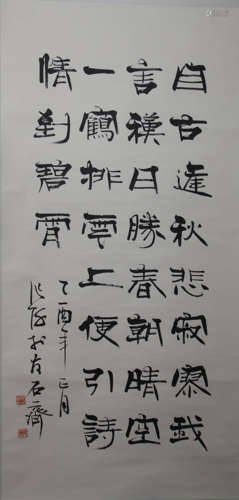 自古逢秋悲寂寥我
言穐日勝春朝晴空
一鶴排雲上便引詩
情到碧霄
乙酉年正月
石齋